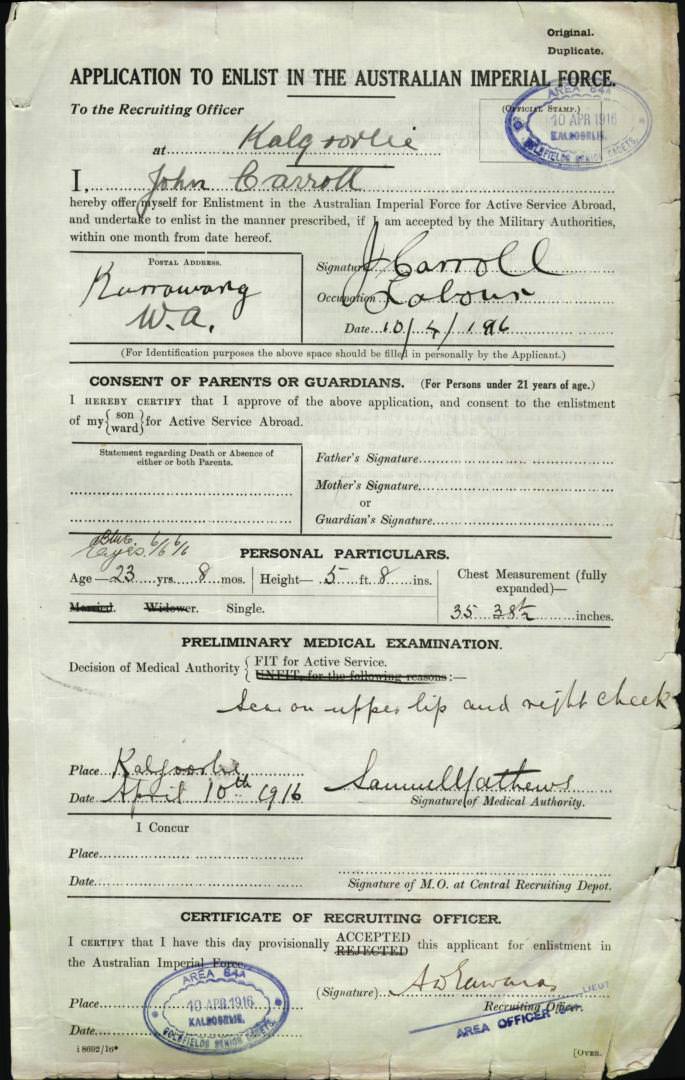 Original.
Duplicate.
APPLICATION TO ENLIST IN THE AUSTRALIAN IMPERIAL FORCE.
To the Recruiting Officer
(Official Stamp.)
AREA 84A
10 APR 1916
KALGOORLIE.
GOLDFIELDS SENIOR CADETS.
at Kalgoorlie
I, John Carroll
hereby offer myself for Enlistment in the Australian Imperial Force for Active Service Abroad,
and undertake to enlist in the manner prescribed, if I am accepted by the Military Authorities,
within one month from date hereof.
Postal Address.
Kurrawang
W.A.
Signature J Carroll
Occupation Labour
Date 10/4/1916
(For Identification purposes the above space should be filled in personally by the Applicant.)
CONSENT OF PARENTS OR GUARDIANS. (For Persons under 21 years of age.)
I HEREBY CERTIFY that I approve of the above application, and consent to the enlistment
of my {son ward} for Active Service Abroad.
Statement regarding Death or Absence of
either or both Parents.
Father's Signature
Mother's Signature
or
Guardian's Signature
Blue
Eyes. 6/6 6/6
PERSONAL PARTICULARS.
Age—23 yrs. 8 mos.
Height—5 ft. 8 ins.
Chest Measurement (fully
expanded)—
35 38½ inches.
Married. Widower. Single.
PRELIMINARY MEDICAL EXAMINATION.
Decision of Medical Authority { FIT for Active Service.
UNFIT, for the following reasons:—
Scar on upper lip and right cheek
Place Kalgoorlie
Date April 10th 1916
Samuel Mathews
Signature of Medical Authority.
I Concur
Place
Date
Signature of M.O. at Central Recruiting Depot.
CERTIFICATE OF RECRUITING OFFICER.
I CERTIFY that I have this day provisionally ACCEPTED REJECTED this applicant for enlistment in
the Australian Imperial Force.
AREA 84A
10 APR 1916
KALGOORLIE.
GOLDFIELDS SENIOR CADETS.
(Signature)
Recruiting Officer.
LIEUT
AREA OFFICER
Place
Date
i 8692/16*
[OVER.